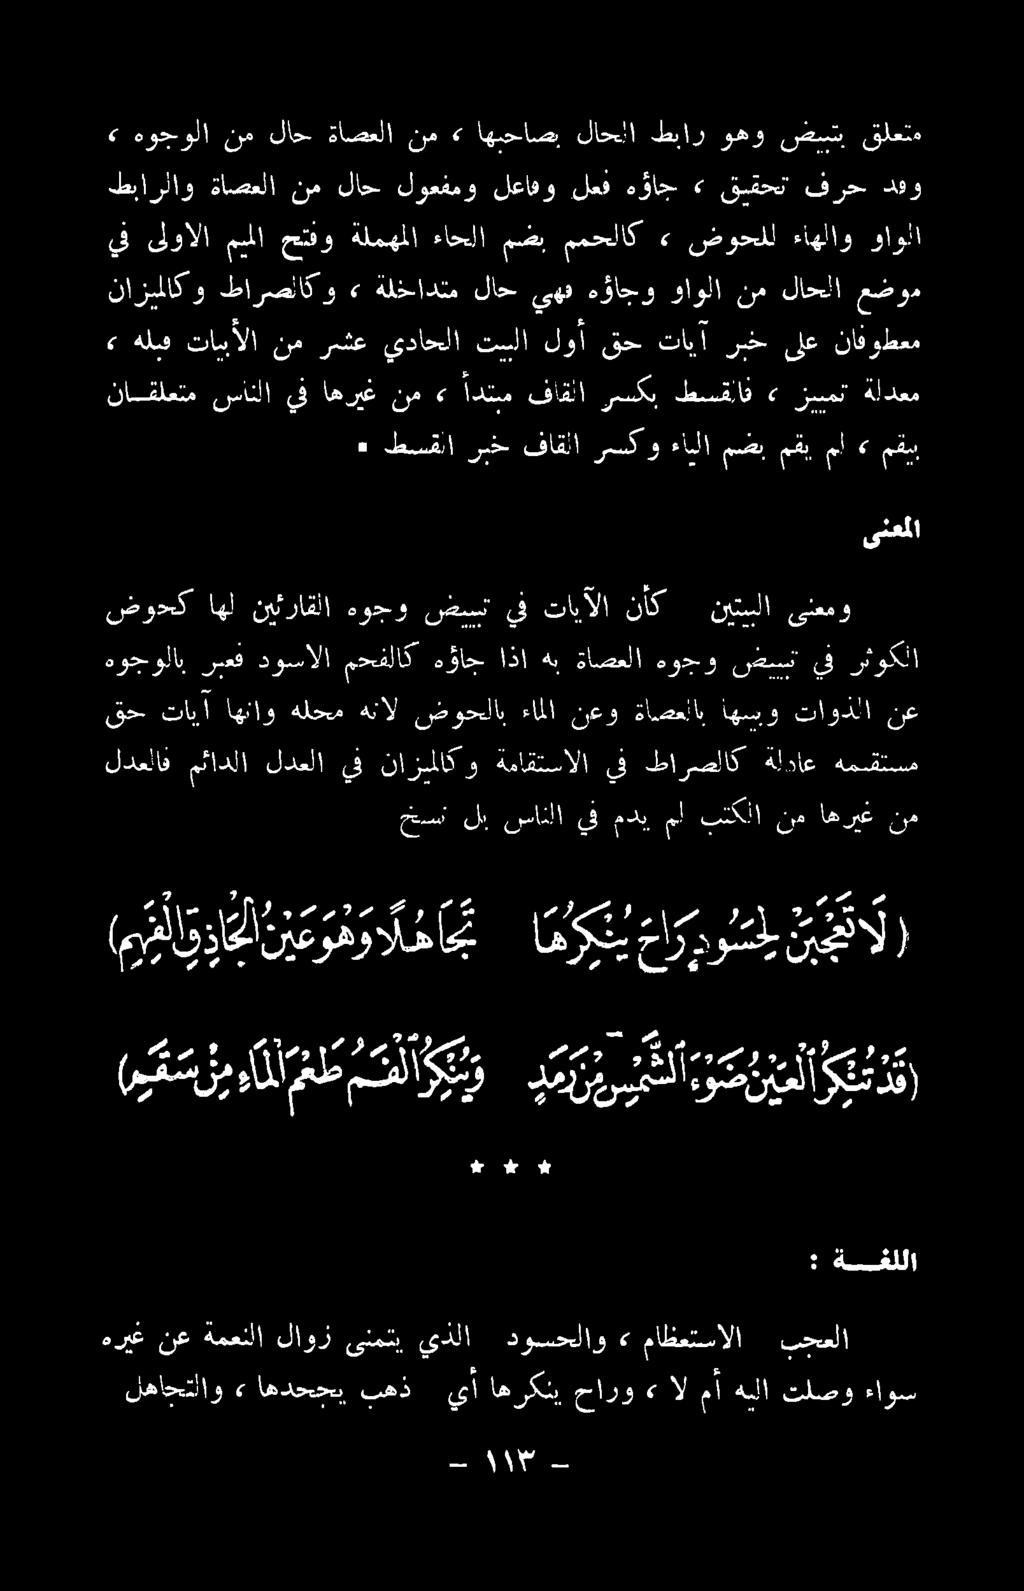 متعلق بتبيض وهو رابط الحال بصاحبها ، من العصاة حال من الوجوه ،
وقد حرف تحقيق ، جاؤه فعل وفاعل ومفعول حال من العصاة والرابط
الواو والهاء للحوض ، كالحمم بضم الحاء المهملة وفتح الميم الاولى في
موضع الحال من الواو وجاؤه فهي حال متداخلة ، وكالصراط وكالميزان
معطوفان على خبر آيات حق أول البيت الحادي عشر من الأبيات قبله ،
معدلة تمييز ، فالقسط بكسر القاف مبتدأ ، من غيرها في الناس متعلقـان
بيقم ، لم يقم بضم الياء وكسر القاف خبر القسط .
المعنى
ومعنى البيتين كأن الآيات في تبييض وجوه القارئين لها كحوض
الكوثر في تبييض وجوه العصاة به اذا جاؤه كالفحم الاسود فعبر بالوجوه
عن الذوات وبيبها بالعصاة وعن الماء بالحوض لانه محله وانها آيات حق
مستقيمه عادلة كالصراط في الاستقامة وكالميزان في العدل الدائم فالعدل
من غيرها من الكتب لم يدم في الناس بل نسخ
(لَا تَعْجَبَنْ لِحَسُودٍ رَاحَ يُنْكِرُهَا تَجَاهُلًا وَهْوَ عَيْنُ الْحَاذِقِ الْفَهِمِ)
(قَدْ تُنْكِرُ الْعَيْنُ ضَوْءَ الشَّمْسِ مِنْ رَمَدٍ وَيُنْكِرُ الْفَمُ طَعْمَ الْمَاءِ مِنْ سَقَمِ)
* * *
اللغـــة :
العجب الاستعظام ، والحسود الذي يتمنى زوال النعمة عن غيره
سواء وصلت اليه أم لا ، وراح ينكرها أي ذهب يجحدها ، والتجاهل
- ١١٣ -